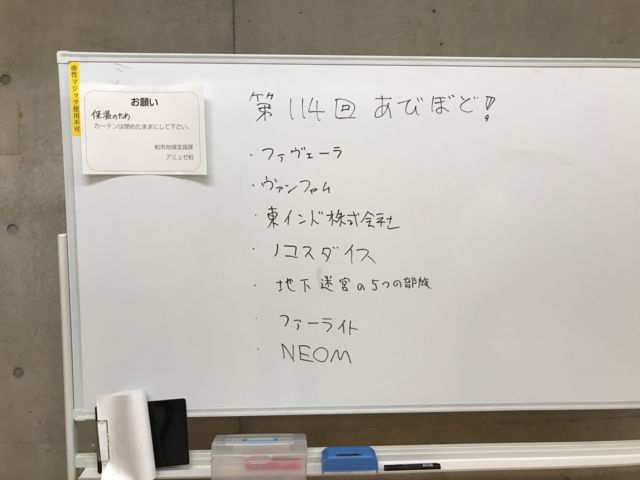 油性マジック使用不可
お願い
保温のため
カーテンは閉めたままにして下さい。
柏市地域支援課
アミュゼ柏
第114回 あびぼど!
・ファヴェーラ
・ヴァンファム
・東インド株式会社
・ノコスダイス
・地下迷宮の5つの部族
・ファーライト
・NEOM